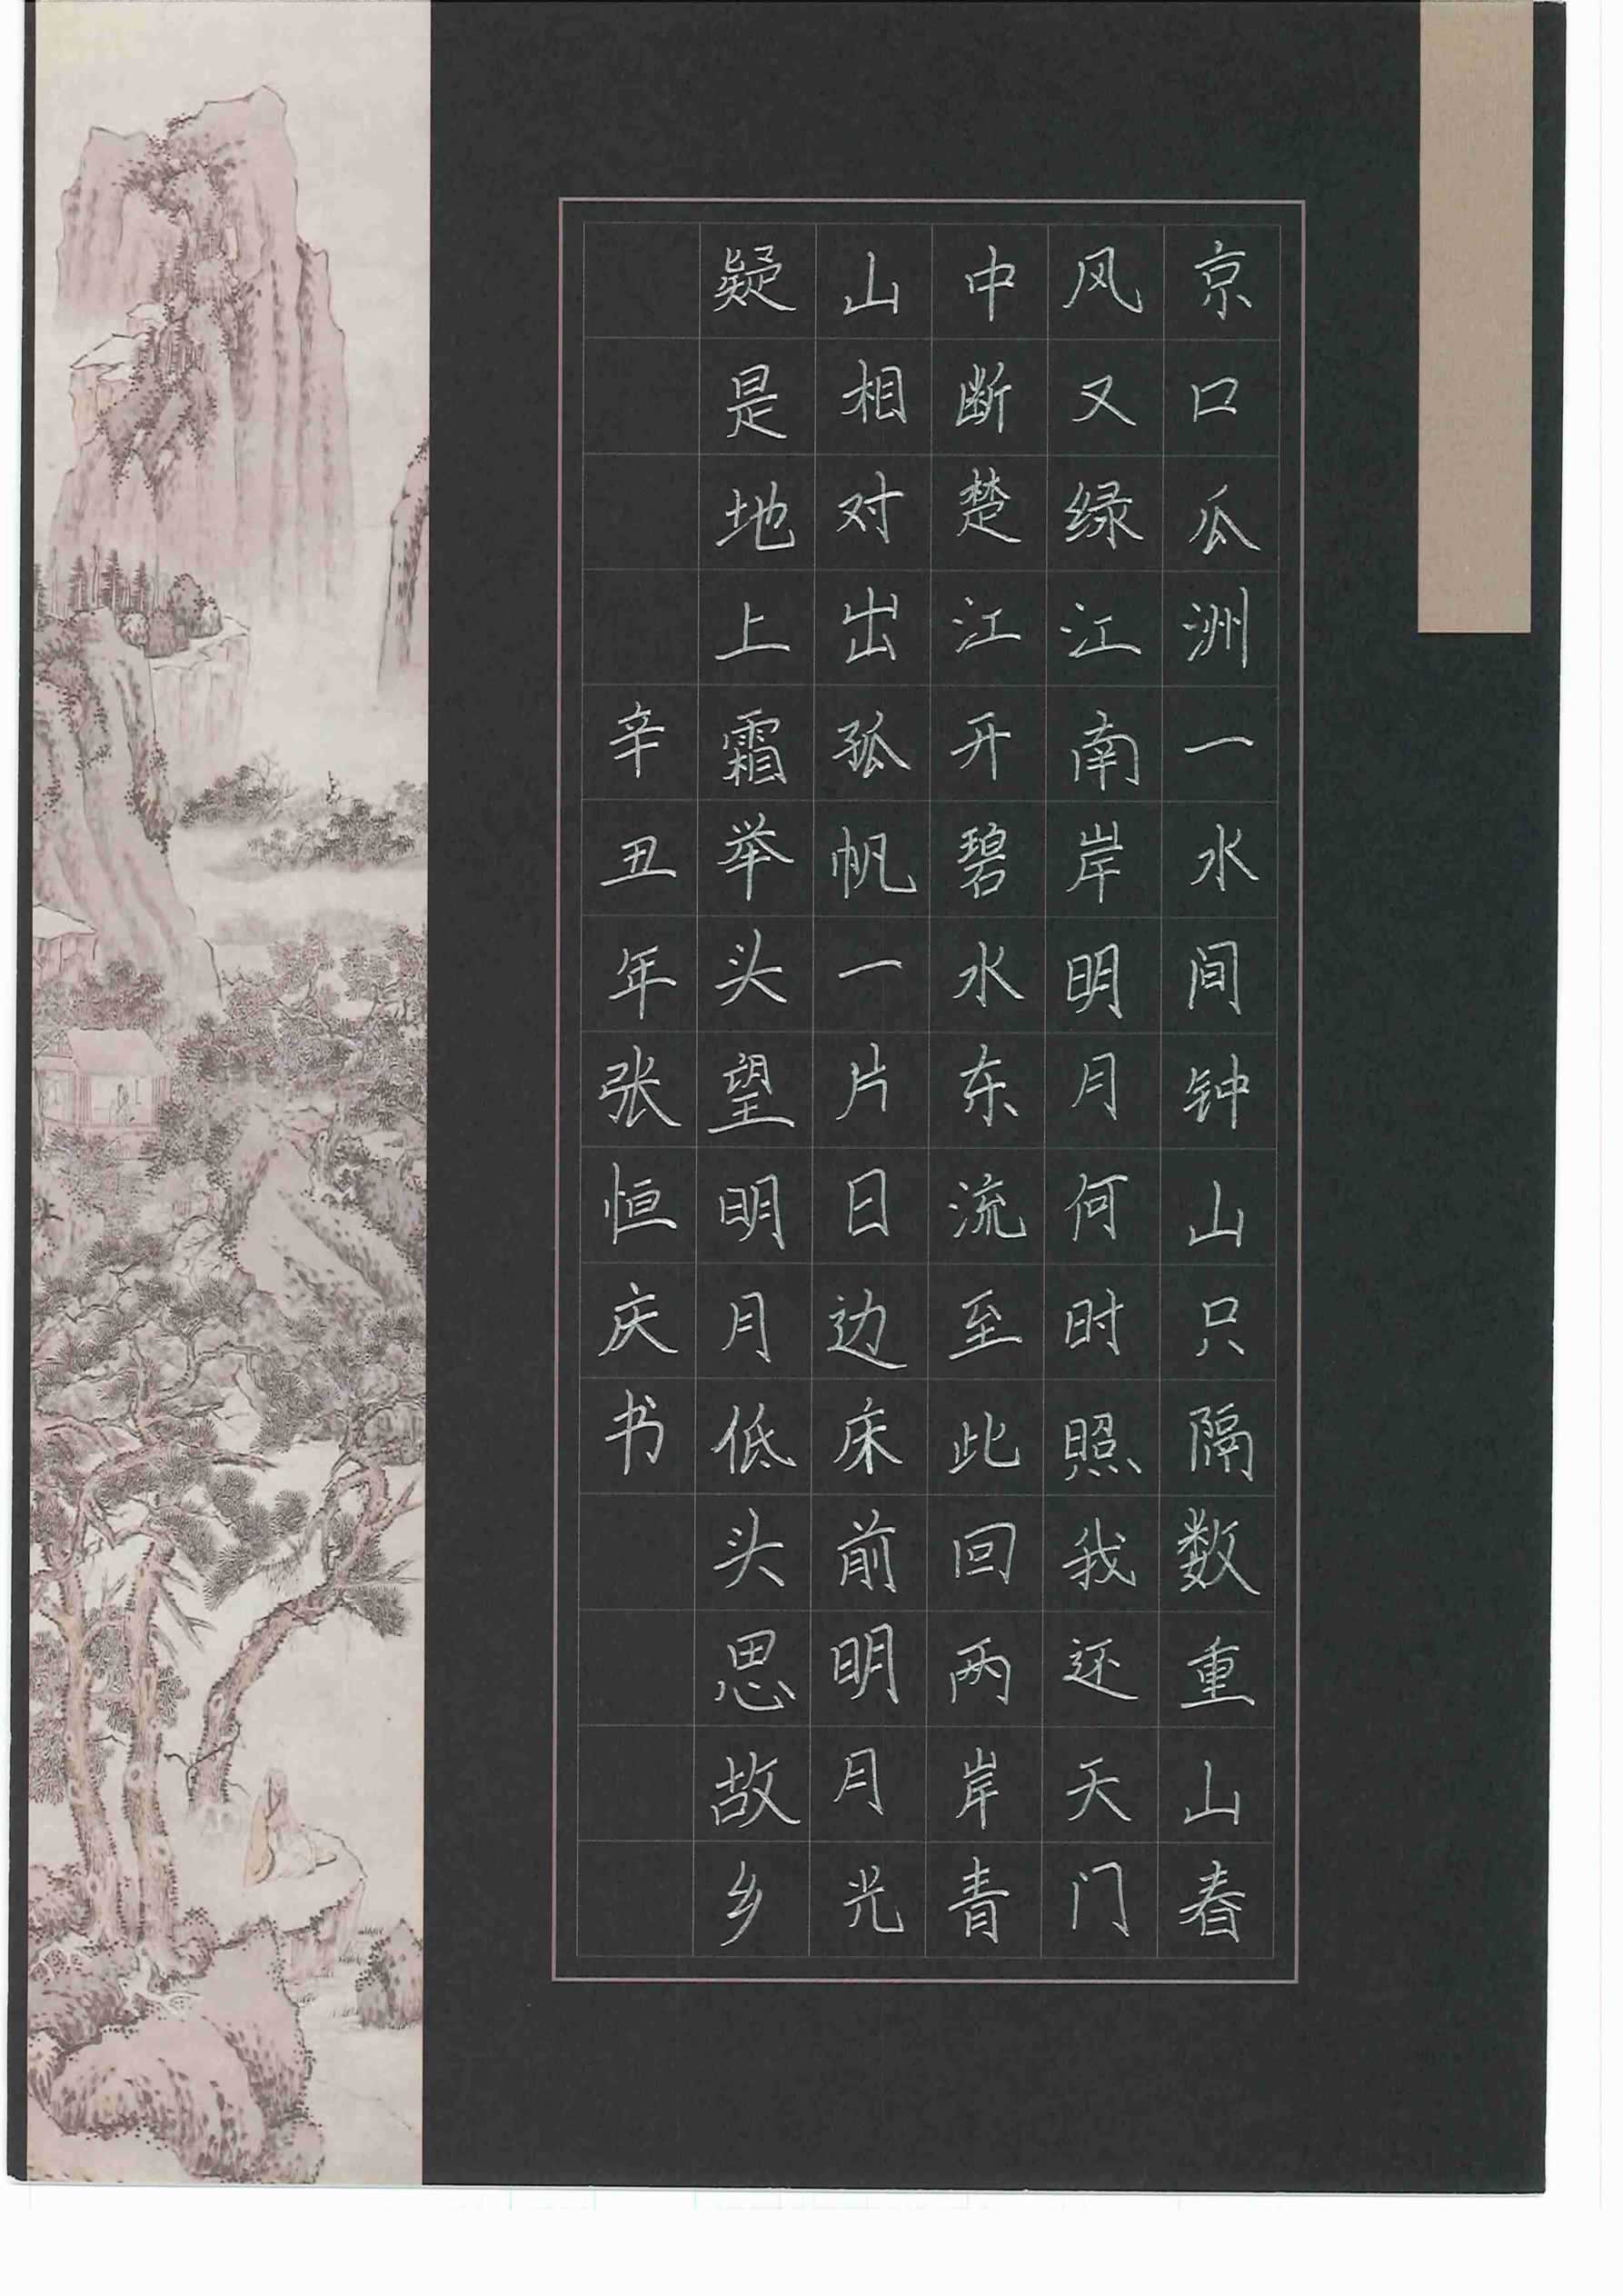 京口瓜洲一水间钟山只隔数重山春
风又绿江南岸明月何时照我还天门
中断楚江开碧水东流至此回两岸青
山相对出孤帆一片日边床前明月光
疑是地上霜举头望明月低头思故乡
辛丑年张恒庆书